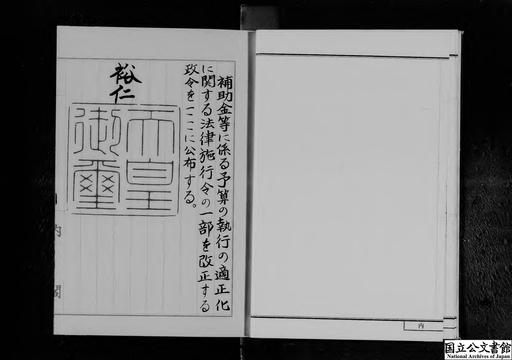 補助金等に係る予算の執行の適正化
に関する法律施行令の一部を改正する
政令をここに公布する。
裕仁
天皇
御璽
内
内閣
国立公文書館
National Archives of Japan